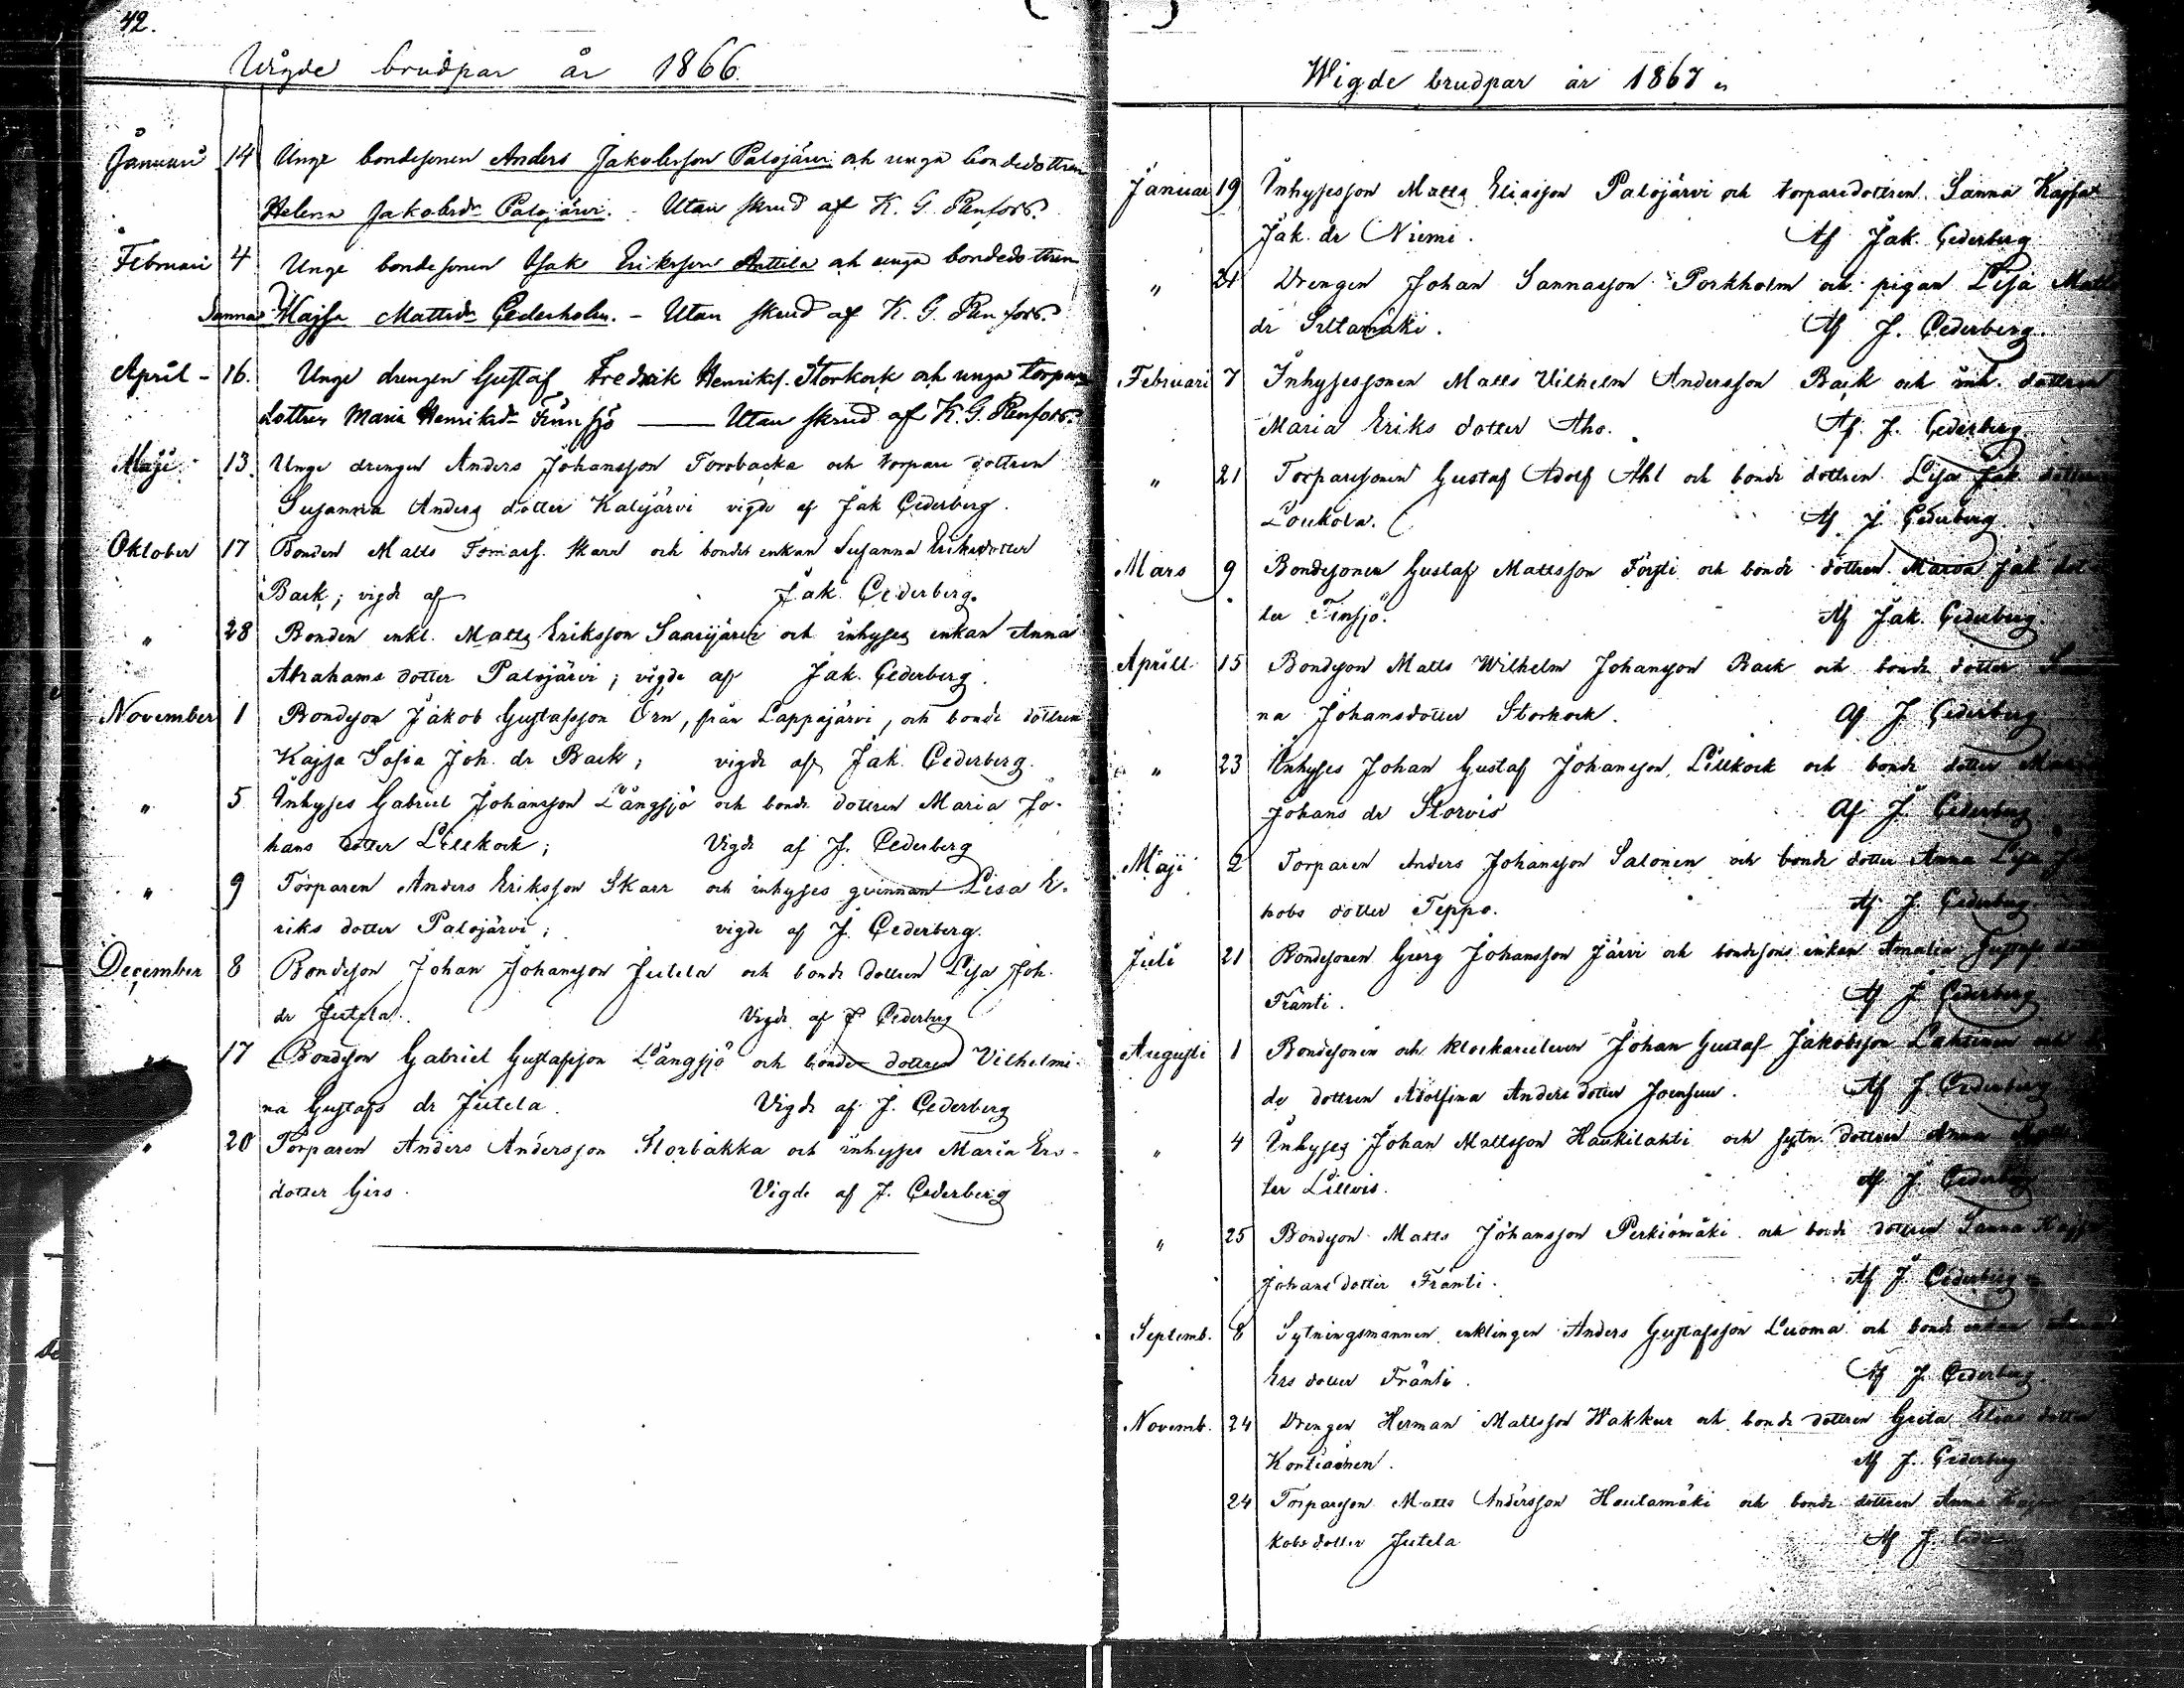 42.
Wigde brudpar år 1866.
Januari 14 Unge bondesonen Anders Jakobsson Palojärvi och unga bondedottren
Helena Jakobsdr Palojärvi. Utan skrud af K. G. Renfors.
Februari 4 Unge bondesonen Isak Eriksson Anttila och unga bondedottren
Sanna Kajsa Mattsdr Cederholm. - Utan skrud af K. G. Renfors.
April - 16. Unge drengen Gustaf Fredrik Henriks. Storkock och unga torpare
dottren Maria Henriksdr Finnsjö — Utan skrud af K. G. Renfors.
Maji 13. Unge drengen Anders Johansson Torrbacka och torpare dottren
Susanna Anders dotter Kalijärvi vigde af Jak Cederberg.
Oktober 17 Bonden Matts Tomass. Skarr och bonde enkan Susanna Eriksdotter
Back; vigde af Jak. Cederberg.
" 28 Bonden enkl. Matts Eriksson Saarijärvi och inhyses enkan Anna
Abrahams dotter Palojärvi; vigde af Jak. Cederberg.
November 1 Bondeson Jakob Gustafsson Örn, från Lappajärvi, och bonde dottren
Kajsa Sofia Joh. dr Back; vigde af Jak. Cederberg.
" 5 Inhyses Gabriel Johansson Långsjö och bonde dottren Maria Jo-
hans dotter Lillkock; Vigde af J. Cederberg
" 9 Torparen Anders Eriksson Skarr och inhyses qvinnan Lisa E-
riks dotter Palojärvi; vigde af J. Cederberg.
December 8 Bondeson Johan Johansson Jutila och bonde dottren Lisa Joh.
dr Jutela. Vigde af J Cederberg
" 17 Bondeson Gabriel Gustafsson Långsjö och bonde dottren Vilhelmi-
na Gustafs dr Jutela. Vigde af J. Cederberg
" 20 Torparen Anders Andersson Storbakka och inhyses Maria Ers-
dotter Girs. Vigde af J. Cederberg
Wigde brudpar år 1867
Januar 19 Inhysesson Matts Eliasson Palojärvi och torparedottren Sanna Kajsa
Jak. dr Niemi. Af Jak. Cederberg
" 21 Drengen Johan Sannasson Porkholm och pigan Lisa Matts
dr Siltamäki. Af J. Cederberg.
Februari 7 Inhysessonen Matts Vilhelm Andersson Back och inh. dottren
Maria Eriks dotter Aho. Af J. Cederberg
" 21 Torparesonen Gustaf Adolf Ahl och bonde dottren Lisa Jak dotter
Loukola. Af J. Cederberg
Mars 9 Bondesonen Gustaf Mattsson Försti och bonde dottren Maria Jak dot
ter Finsjö. Af Jak. Cederberg
Aprill 15 Bondeson Matts Wilhelm Johansson Back och bonde dotter
na Johansdotter Storkock. Af J. Cederberg
" 23 Inhyses Johan Gustaf Johansson Lillkock och bonde dotter
Johans dr Storvis Af J. Cederberg
Maji 2 Torparen Anders Johansson Salonen och bonde dotter Anna Lisa
kobs dotter Teppo. Af J. Cederberg.
Juli 21 Bondesonen Georg Johansson Järvi och bondesons enkan Amalia Gustafs
Fränti. Af J. Cederberg
Augusti 1 Bondesonen och klockareeleven Johan Gustaf Jakobsson Lahtinen och
de dottren Adolfina Anders dotter Joensuu. Af J. Cederberg
" 4 Inhyses Johan Mattsson Haukilahti och sytn. dottren Anna
ter Lillvis. Af J. Cederberg
" 25 Bondeson Matts Johansson Perkiömäki och bonde dottren Sanna Kajsa
Johans dotter Fränti. Af J. Cederberg
Septemb. 8 Sytningsmannen enklingen Anders Gustafsson Luoma och bonde enkan
Ers dotter Fränti. Af J. Cederberg.
Novemb. 24 Drengen Herman Mattsson Wakkur och bonde dottren Greta Elias dotter
Kontiainen. Af J. Cederberg
24 Torpareson Matts Andersson Hautamäki och bonde dottren Anna Kajsa
kobs dotter Jutela Af J.